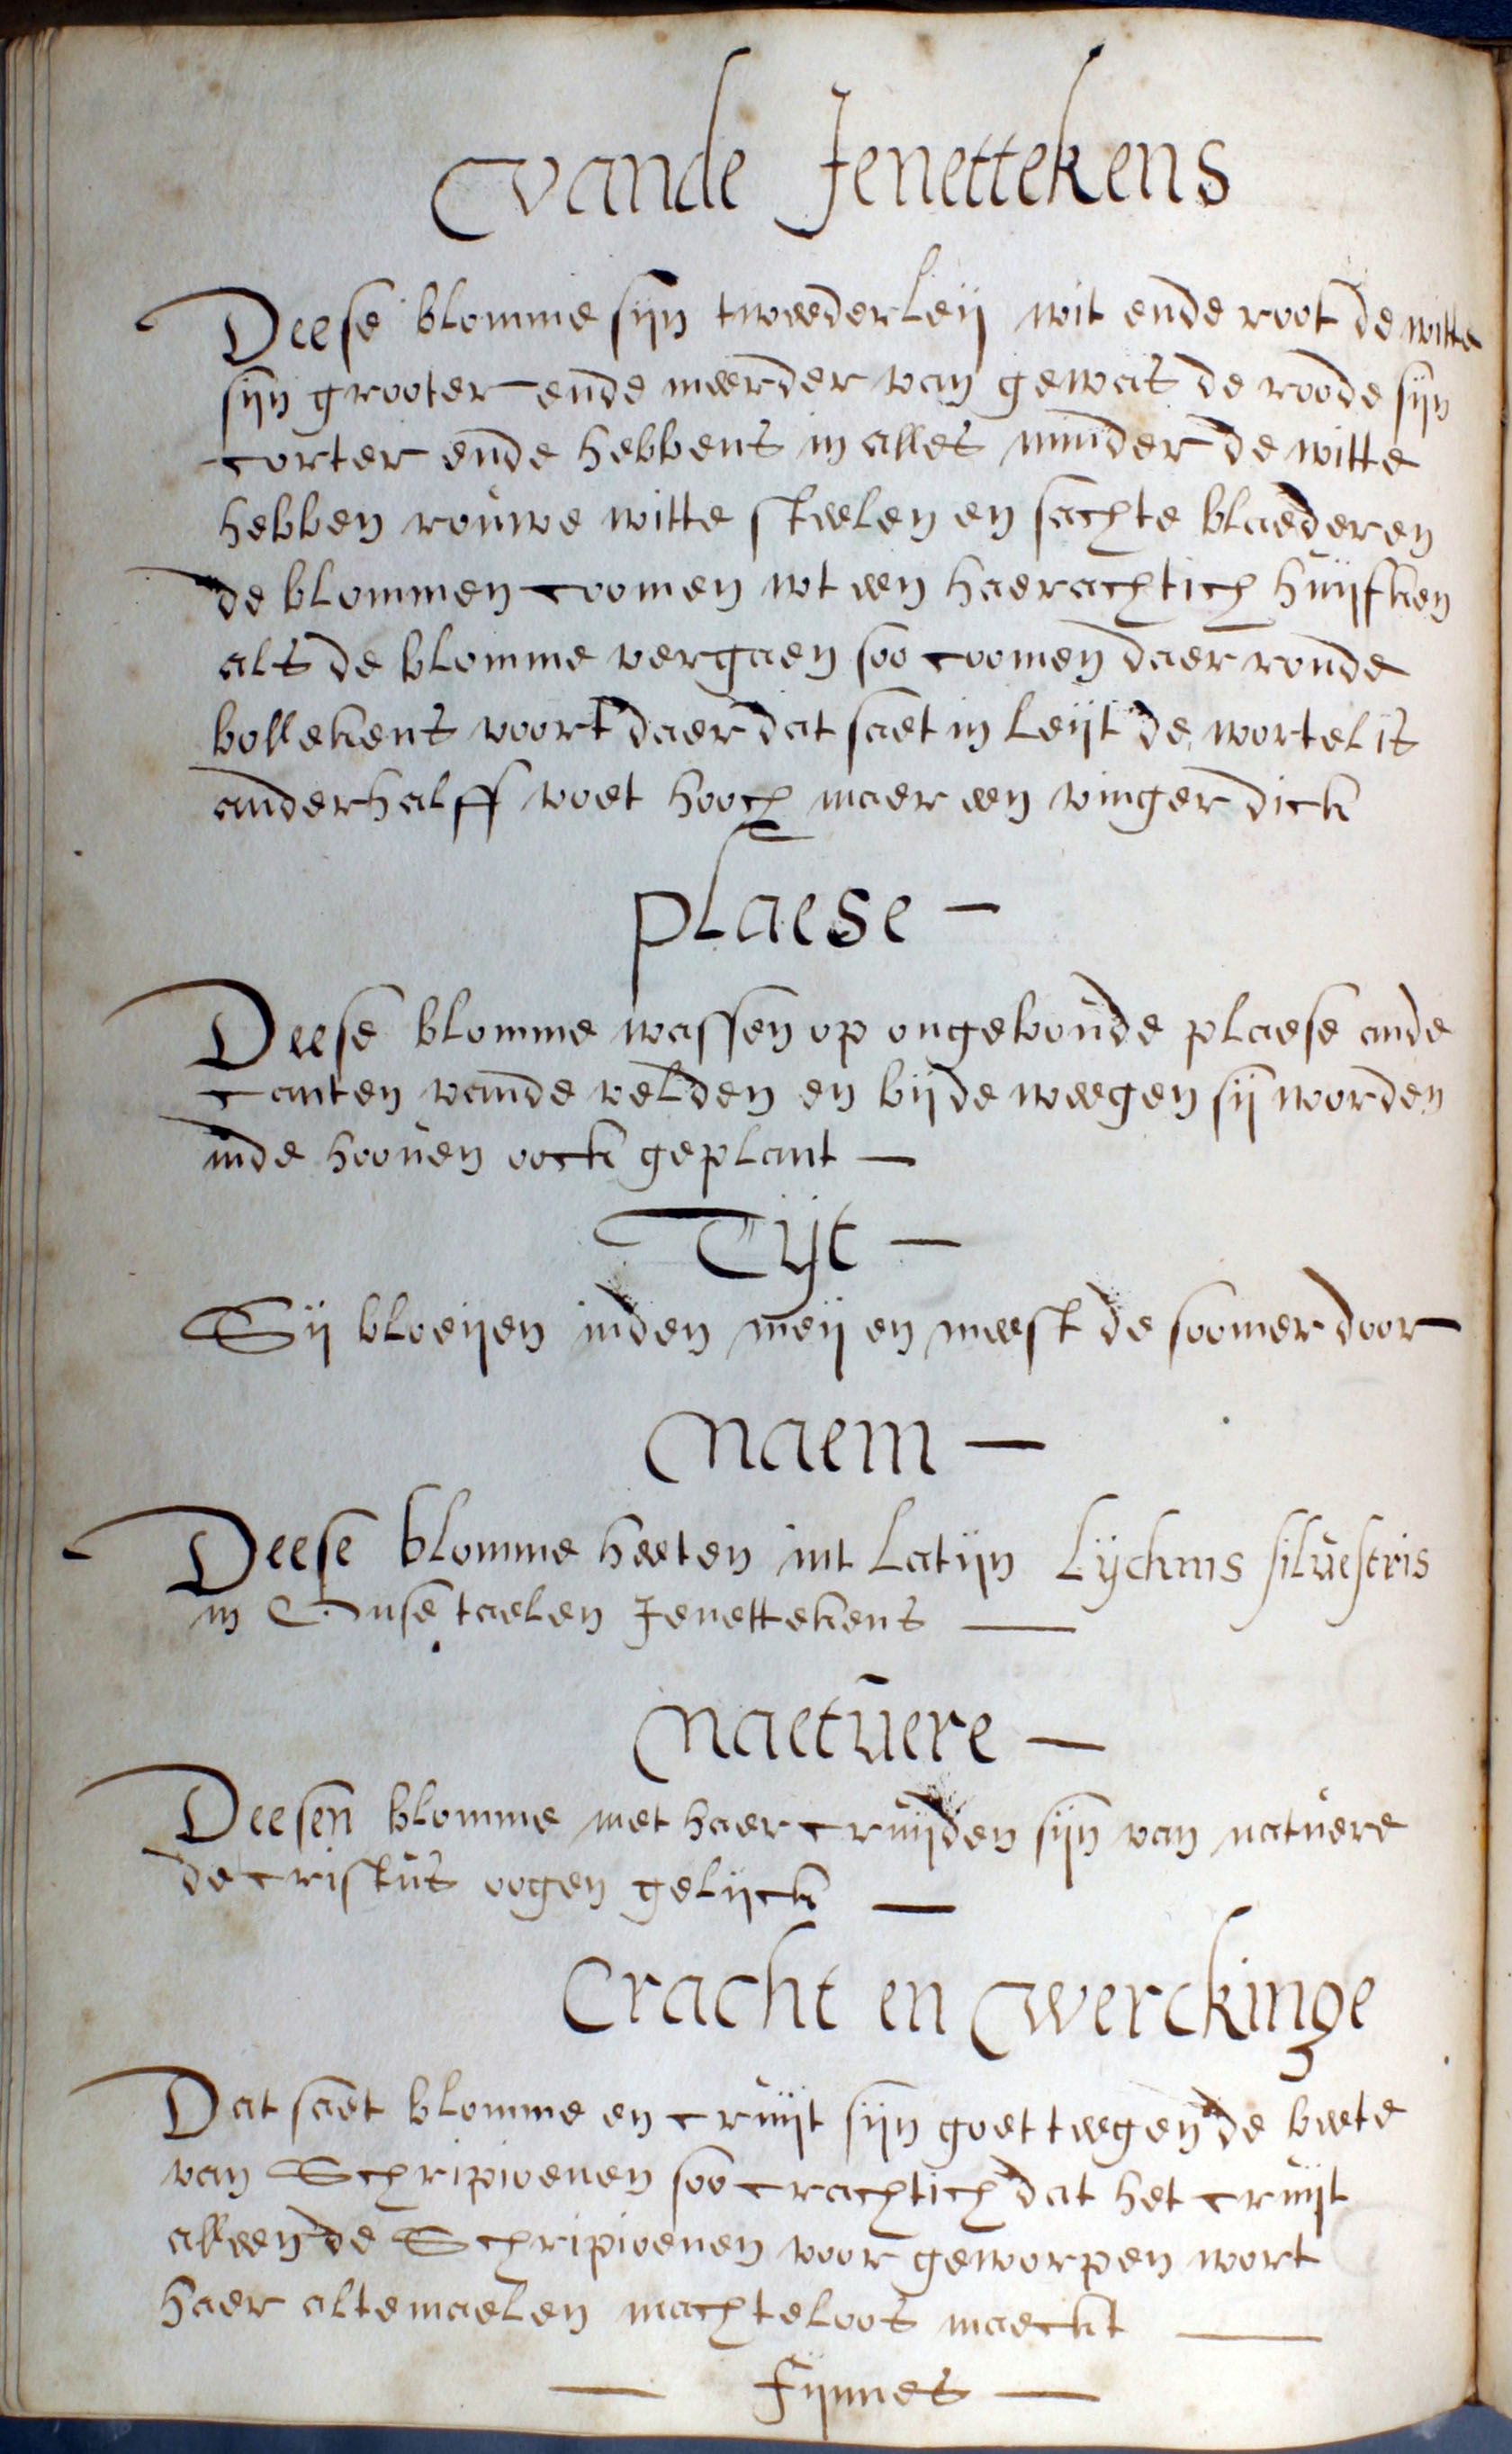 vande Jenettekens
Deese blomme sijn tweederleij wit ende root de witte
sijn grooter ende meerder van gewas de roode sijn
corter ende hebbens in alles minder de witte
hebben rouwe witte steelen en sachte blaederen
de blommen coomen wt een haerachtich huijfken
als de blomme vergaen soo coomen daer ronde
bollekens voort daer dat saet in leijt de wortel is
anderhalff voet hooch maer een vinger dick
plaese –
Deese blomme wassen op ongeboude plaese ande
canten vande velden en bij de weegen sij worden
inde hooven oock geplant –
Tijt –
Sij bloeijen inden meij en meest de soomer door
Naem –
Deese blomme heeten int Latijn Lijchnis silvestris
in Onse taelen Jenettekens –
Naetuere –
Deesen blomme met haer cruijden sijn van natuere
de cristus oogen gelijck –
Cracht en werckinge
Dat saet blomme en cruijt sijn goet teegen de beete
van Schripioenen soo crachtich dat het cruijt
alleen de Schripioenen voor geworpen wort
haer altemaelen machteloos maeckt –
– Fijnnes –